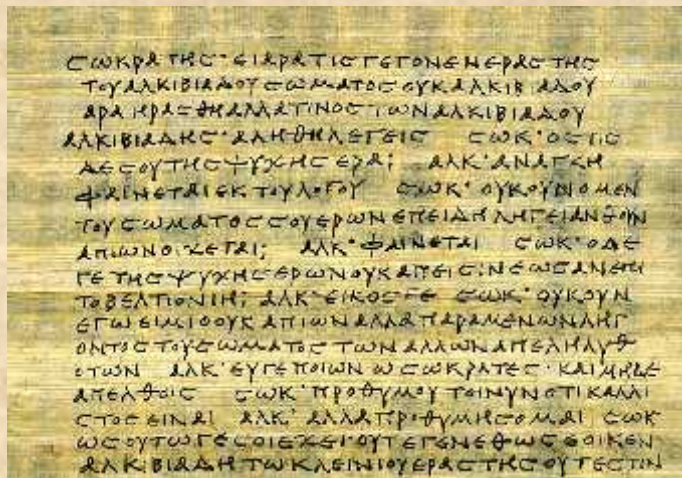 ϹΩΚΡΑΤΗϹ·ΕΙΑΡΑΤΙϹΓΕΓΟΝΕΝΕΡΑϹΤΗϹ
ΤΟΥΑΛΚΙΒΙΑΔΟΥϹΩΜΑΤΟϹΟΥΚΑΛΚΙΒΙΑΔΟΥ
ΑΡΑΗΡΑϹΘΗΑΛΛΑΤΙΝΟϹΤΩΝΑΛΚΙΒΙΑΔΟΥ
ΑΛΚΙΒΙΑΔΗϹ·ΑΛΗΘΗΛΕΓΕΙϹ ϹΩΚ·ΟϹΤΙϹ
ΔΕϹΟΥΤΗϹΨΥΧΗϹΕΡΑ; ΑΛΚ·ΑΝΑΓΚΗ
ΦΑΙΝΕΤΑΙΕΚΤΟΥΛΟΓΟΥ ϹΩΚ·ΟΥΚΟΥΝΟΜΕΝ
ΤΟΥϹΩΜΑΤΟϹϹΟΥΕΡΩΝΕΠΕΙΔΗΛΗΓΕΙΑΝΘΟΥΝ
ΑΠΙΩΝΟΙΧΕΤΑΙ; ΑΛΚ·ΦΑΙΝΕΤΑΙ ϹΩΚ·ΟΔΕ
ΓΕΤΗϹΨΥΧΗϹΕΡΩΝΟΥΚΑΠΕΙϹΙΝΕΩϹΑΝΕΠΙ
ΤΟΒΕΛΤΙΟΝΙΗ; ΑΛΚ·ΕΙΚΟϹΓΕ ϹΩΚ·ΟΥΚΟΥΝ
ΕΓΩΕΙΜΙΟΟΥΚΑΠΙΩΝΑΛΛΑΠΑΡΑΜΕΝΩΝΛΗΓ
ΟΝΤΟϹΤΟΥϹΩΜΑΤΟϹΤΩΝΑΛΛΩΝΑΠΕΛΗΛΥΘ
ΟΤΩΝ ΑΛΚ·ΕΥΓΕΠΟΙΩΝΩϹΩΚΡΑΤΕϹ·ΚΑΙΜΗΔΕ
ΑΠΕΛΘΟΙϹ ϹΩΚ·ΠΡΟΘΥΜΟΥΤΟΙΝΥΝΟΤΙΚΑΛΛΙ
ϹΤΟϹΕΙΝΑΙ ΑΛΚ·ΑΛΛΑΠΡΟΘΥΜΗϹΟΜΑΙ ϹΩΚ
ΩϹΟΥΤΩΓΕϹΟΙΕΧΕΙ·ΟΥΤΕΓΕΝΕΘΩϹΕΟΙΚΕΝ
ΑΛΚΙΒΙΑΔΗΤΩΚΛΕΙΝΙΟΥΕΡΑϹΤΗϹΟΥΤΕϹΤΙΝ